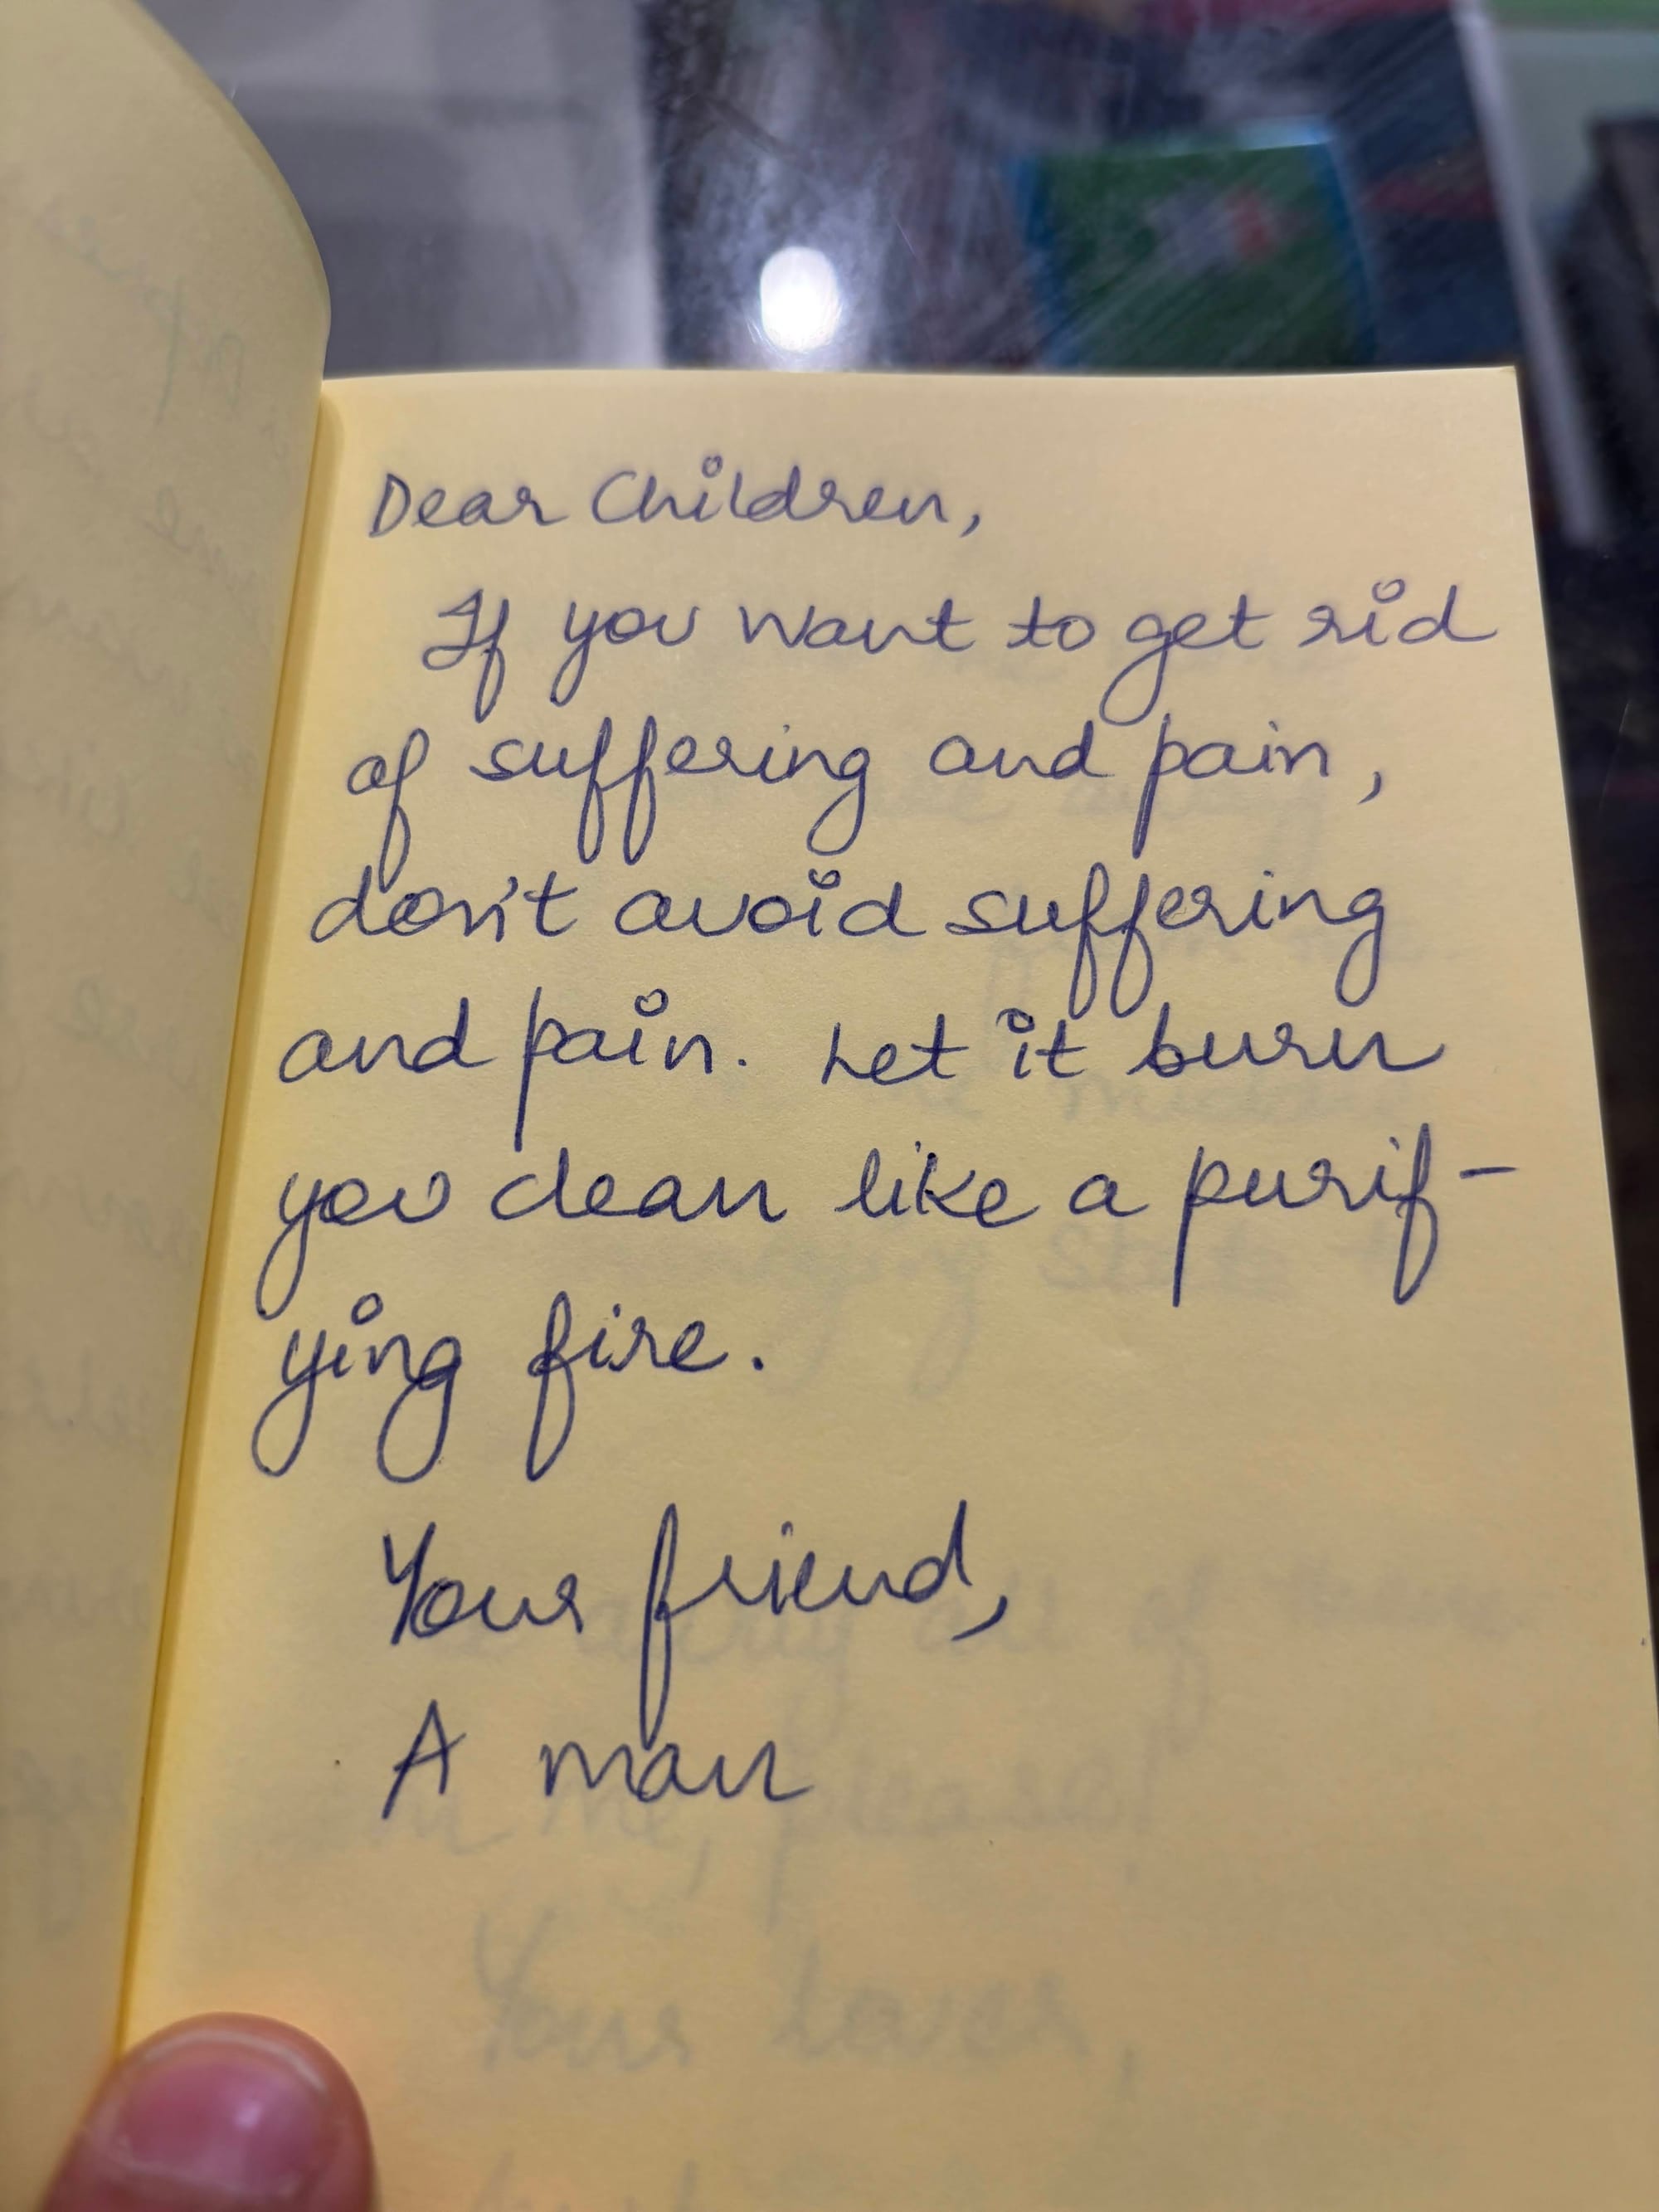 Dear Children,
If you want to get rid
of suffering and pain,
don't avoid suffering
and pain. Let it burn
you clean like a purif-
ying fire.
Your friend,
A man